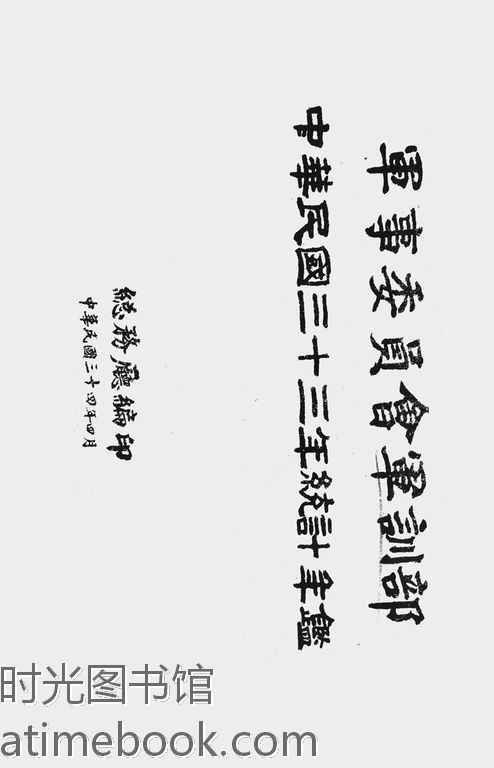 軍事委員會軍訓部
中華民國三十三年統計年鑑
總務廳編印
中華民國三十四年四月
时光图书馆
atimebook.com